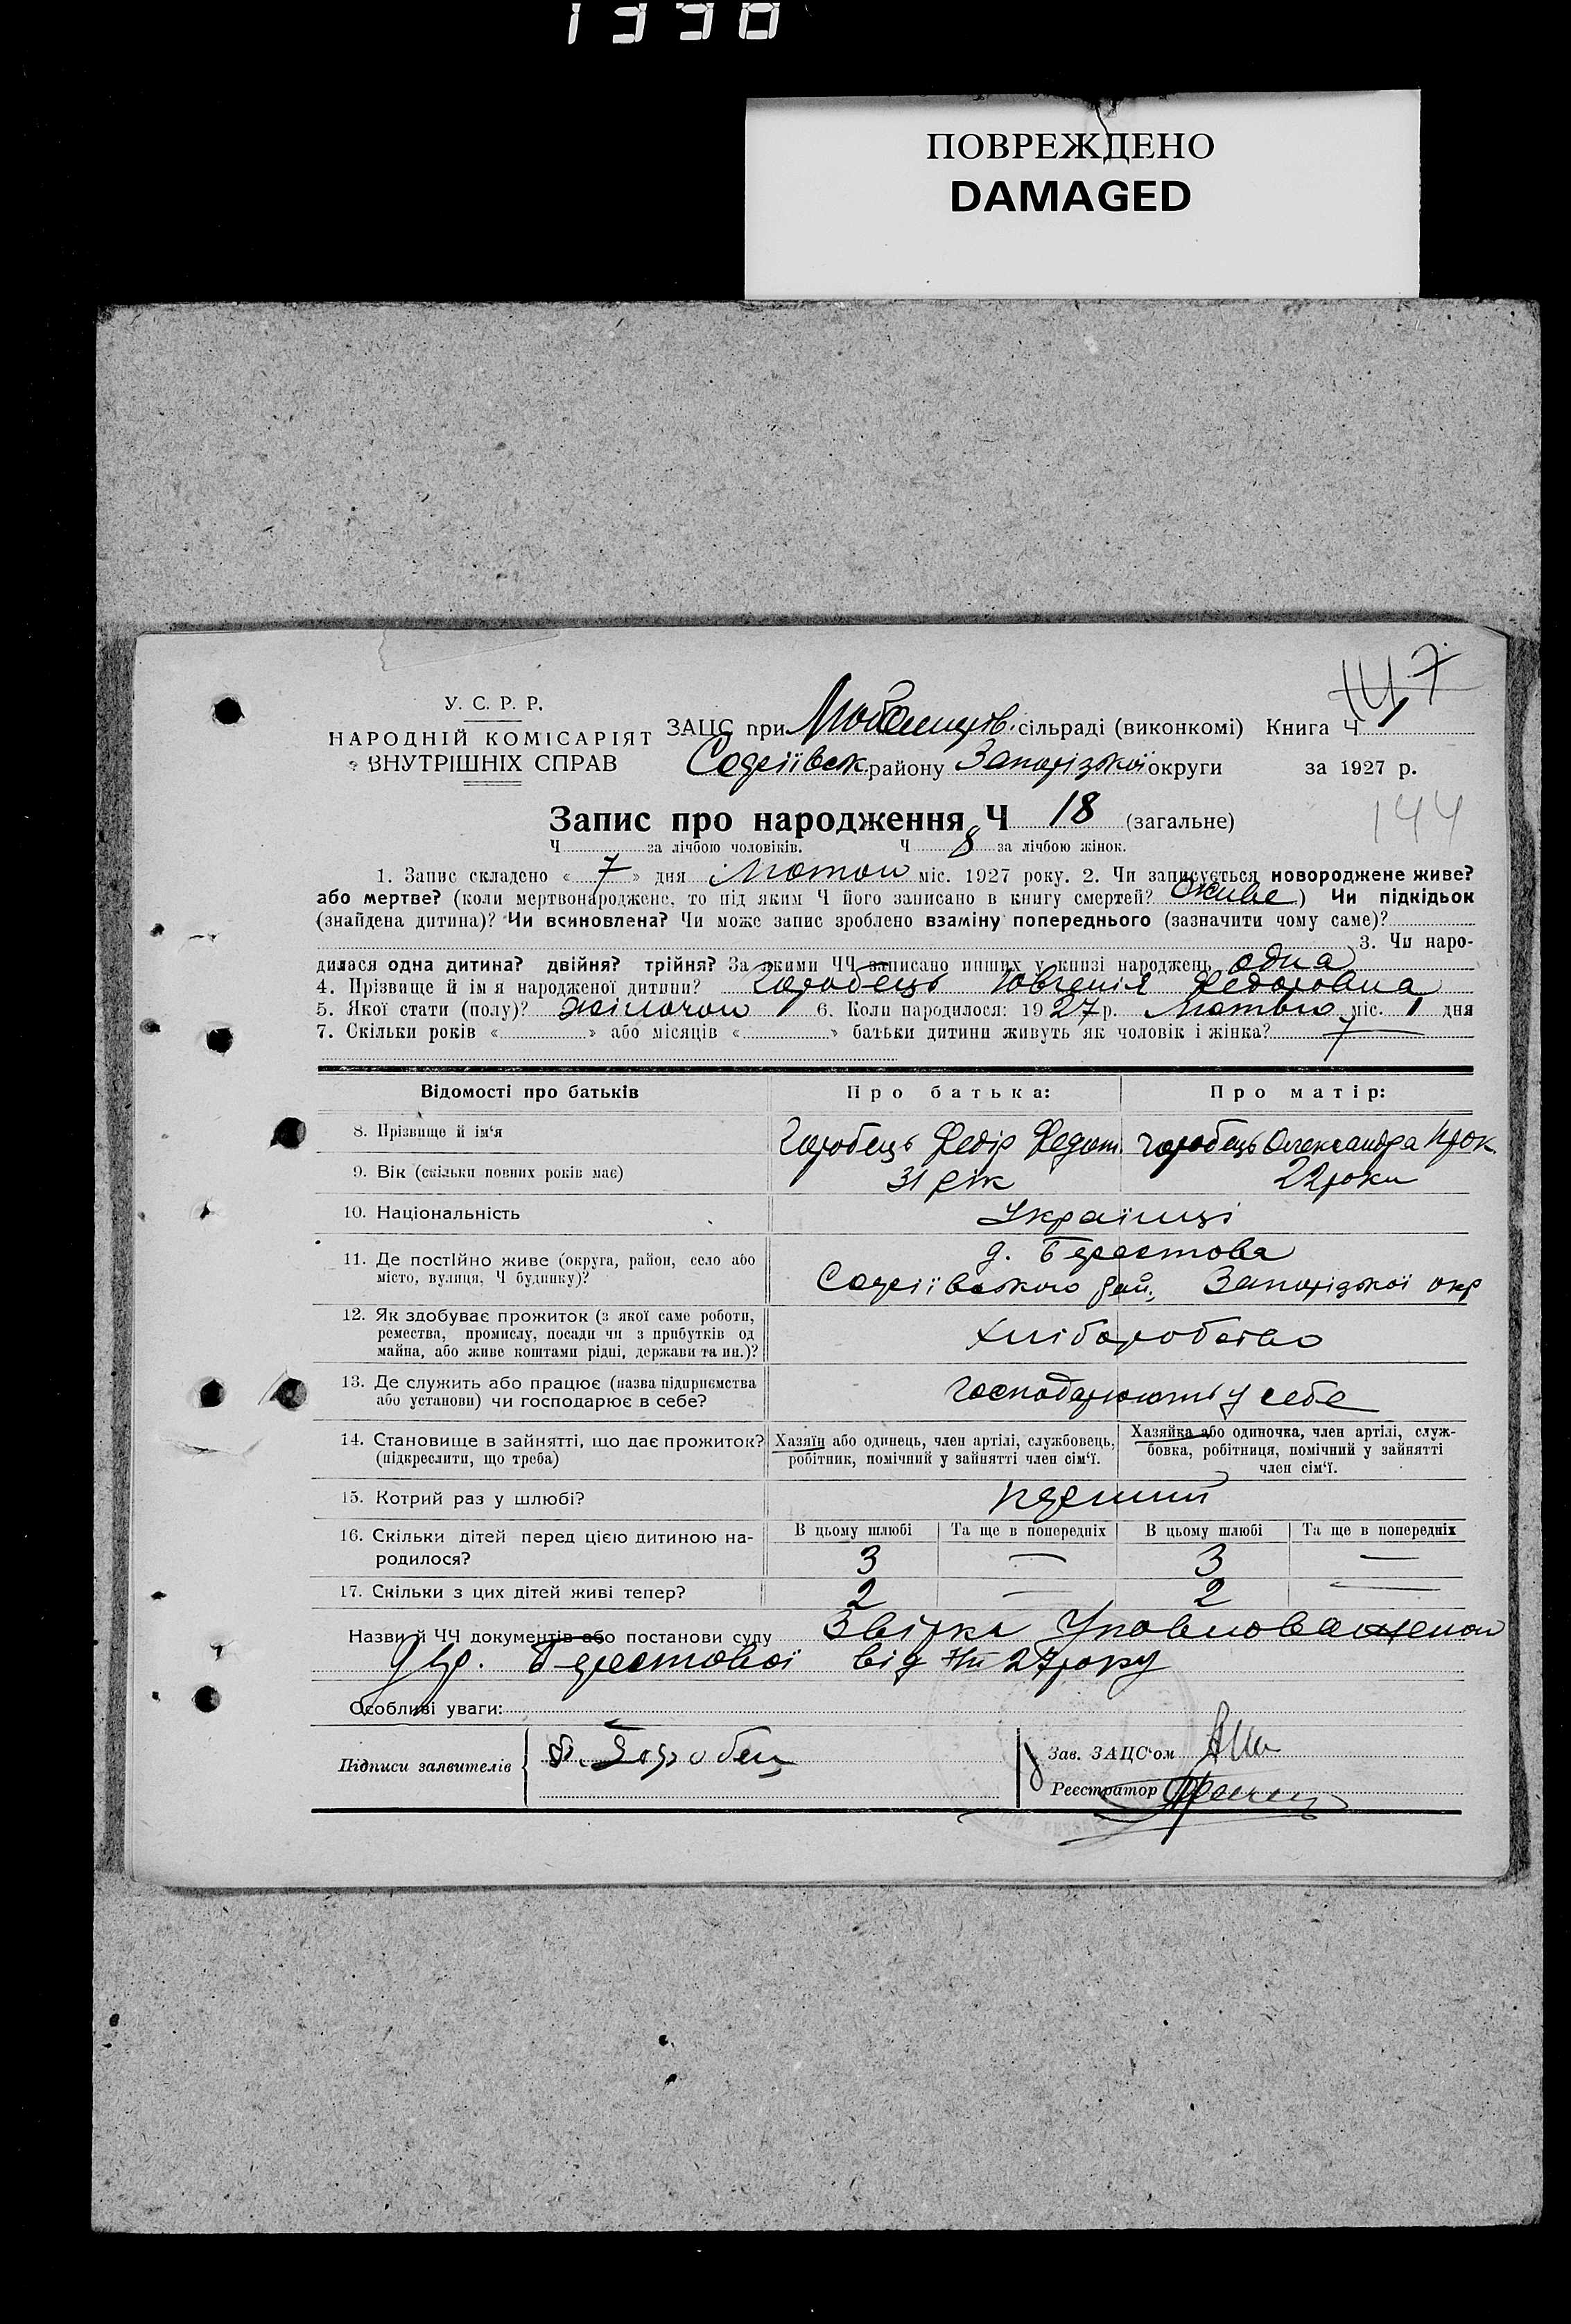 1390
ПОВРЕЖДЕНО
DAMAGED
147
У. С. Р. Р.
НАРОДНІЙ КОМІСАРІЯТ
ВНУТРІШНІХ СПРАВ
ЗАЦС при сільраді (виконкомі) Книга Ч 1
району Запорізької округи за 1927 р.
144
Запис про народження Ч 18 (загальне)
Ч за лічбою чоловіків. Ч 8 за лічбою жінок.
1. Запис складено « 7 » дня Лютого міс. 1927 року. 2. Чи записується новороджене живе?
або мертве? (коли мертвонароджене, то під яким Ч його записано в книгу смертей? живе) Чи підкідьок
(знайдена дитина)? Чи всиновлена? Чи може запис зроблено взаміну попереднього (зазначити чому саме)?
3. Чи наро-
дилася одна дитина? двійня? трійня? За якими ЧЧ записано инших у книзі народжень одна
4. Прізвище й ім'я народженої дитини? Горобець Федоровна
5. Якої стати (полу)? жіночої 6. Коли народилося: 1927 р. Лютого міс. 1 дня
7. Скільки років « » або місяців « » батьки дитини живуть як чоловік і жінка? 7
Відомості про батьків
Про батька: Про матір:
8. Прізвище й ім'я Горобець Федір Федот. Горобець Олександра Прок.
9. Вік (скільки повних років має) 31 рік 22 роки
10. Національність Українці
11. Де постійно живе (округа, район, село або
місто, вулиця, Ч будинку)?
д. Берестова
рай., Запорізької окр
12. Як здобуває прожиток (з якої саме роботи,
ремества, промислу, посади чи з прибутків од
майна, або живе коштами рідні, держави та ин.)?
хліборобство
13. Де служить або працює (назва підприємства
або установи) чи господарює в себе?
господарюють у себе
14. Становище в зайнятті, що дає прожиток?
(підкреслити, що треба)
Хазяїн або одинець, член артілі, службовець,
робітник, помічний у зайнятті член сім'ї.
Хазяйка або одиночка, член артілі, служ-
бовка, робітниця, помічний у зайнятті
член сім'ї.
15. Котрий раз у шлюбі? перший
16. Скільки дітей перед цією дитиною на-
родилося?
В цьому шлюбі Та ще в попередніх В цьому шлюбі Та ще в попередніх
3 — 3 —
17. Скільки з цих дітей живі тепер? 2 — 2 —
Назви й ЧЧ документів або постанови суду Звірка Уповноваженого
Берестової від 7/II 27 року
Особливі уваги:
Підписи заявителів
Ф. Горобец
Зав. ЗАЦС'ом
Реєстратор